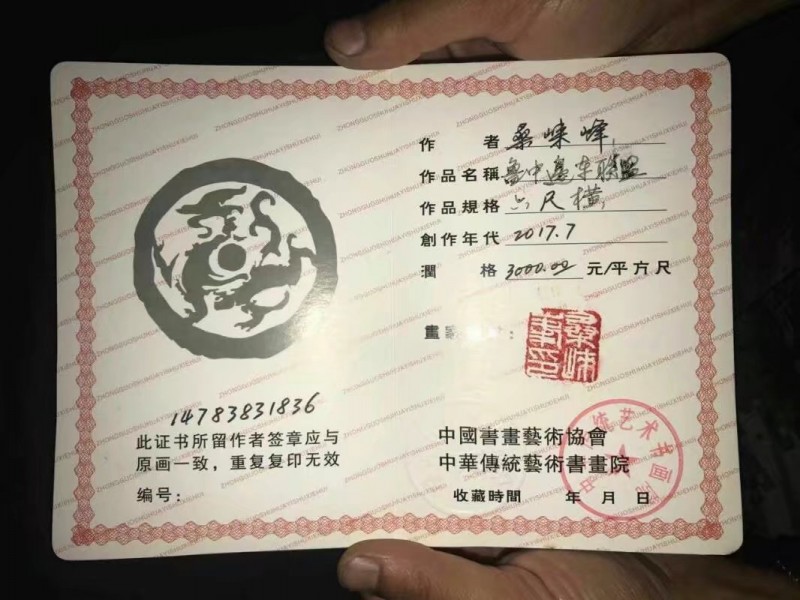 作者 桑崃峰
作品名稱
作品規格 六尺横
創作年代 2017.7
潤格 3000.00 元/平方尺
畫
14783831836
此证书所留作者签章应与
原画一致，重复复印无效
编号：
中國書畫藝術協會
中華傳統藝術書畫院
收藏時間 年 月 日
ZHONGGUOSHUHUAYISHUXIEHUI